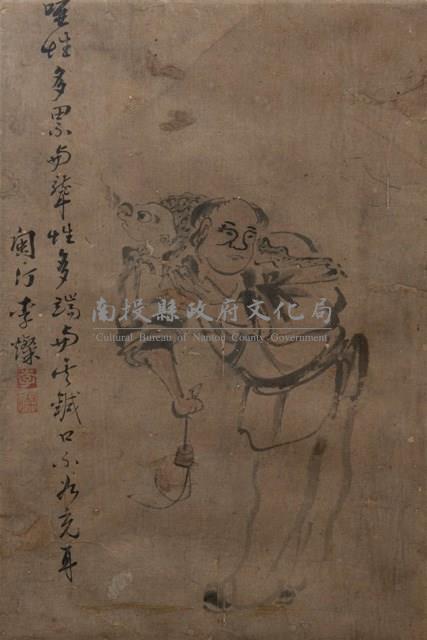 性多累与聾性多端与其鍼口不如充耳
閩汀李燦
南投縣政府文化局
Cultural Bureau of Nantou County Government